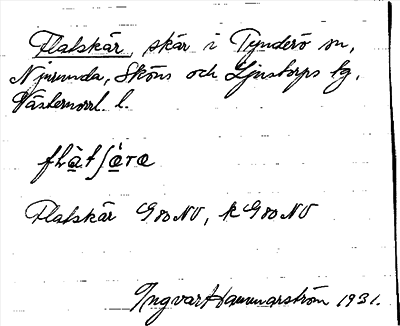 Flatskär, skär i Tynderö sn,
Njurunda, Sköns och Ljustorps tg,
Västernorrl. l.
flàtʃæ̀ra
Flatskär G 80 NV, k G 80 NV
Ingvar Hammarström 1931.